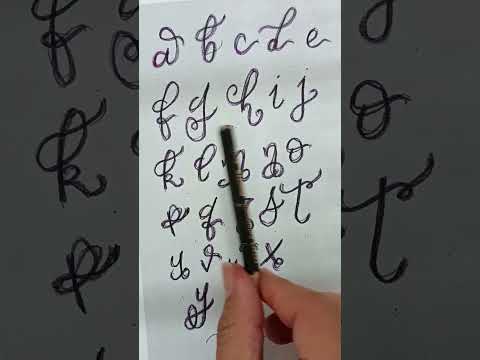 a b c d e
f g h i j
k l m n o
p q s t
u v x
y